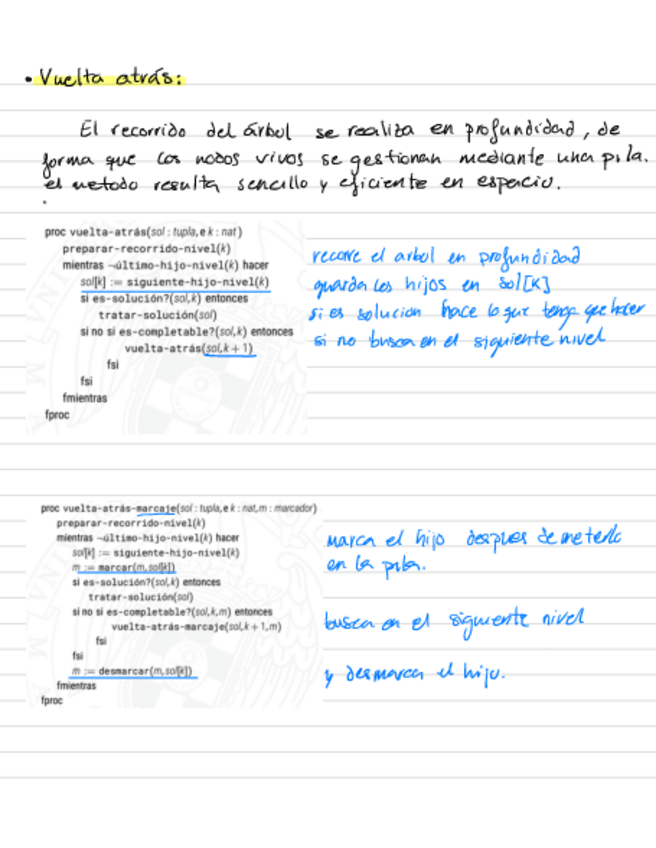 • Vuelta atrás:
El recorrido del árbol se realiza en profundidad, de
forma que los nodos vivos se gestionan mediante una pila.
el metodo resulta sencillo y eficiente en espacio.
proc vuelta-atrás(sol : tupla, e k : nat)
preparar-recorrido-nivel(k)
mientras ¬último-hijo-nivel(k) hacer
sol[k] := siguiente-hijo-nivel(k)
si es-solución?(sol,k) entonces
tratar-solución(sol)
si no si es-completable?(sol,k) entonces
vuelta-atrás(sol,k+1)
fsi
fsi
fmientras
fproc
recorre el arbol en profundidad
guarda los hijos en Sol[K]
si es solucion hace lo que tenga que hacer
si no busca en el siguiente nivel
proc vuelta-atrás-marcaje(sol : tupla, e k : nat, m : marcador)
preparar-recorrido-nivel(k)
mientras ¬último-hijo-nivel(k) hacer
sol[k] := siguiente-hijo-nivel(k)
m := marcar(m,sol[k])
si es-solución?(sol,k) entonces
tratar-solución(sol)
si no si es-completable?(sol,k,m) entonces
vuelta-atrás-marcaje(sol,k+1,m)
fsi
fsi
m := desmarcar(m,sol[k])
fmientras
fproc
marca el hijo despues de meterlo
en la pila.
busca en el siguiente nivel
y desmarca el hijo.